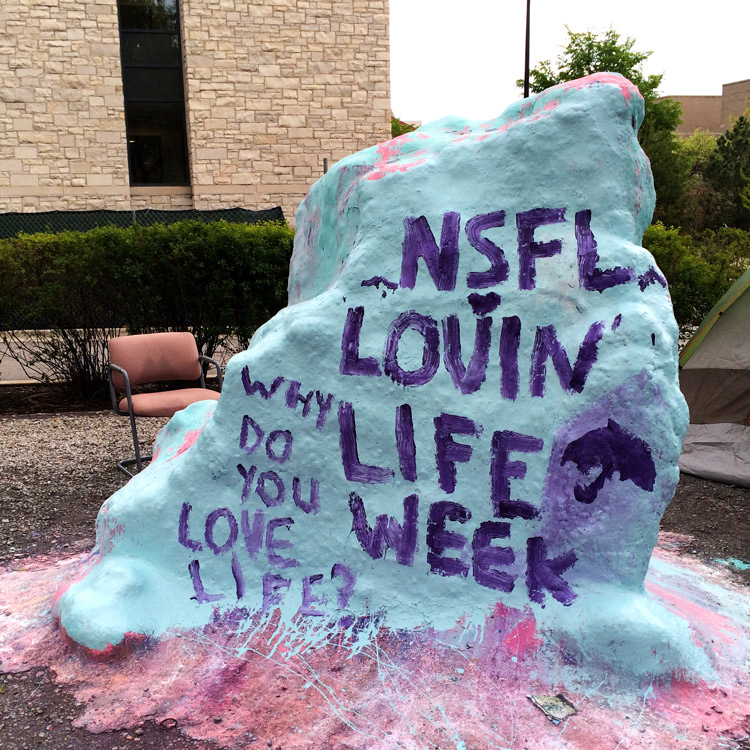 NSFL
LOVIN'
LIFE
WEEK
WHY
DO
YOU
LOVE
LIFE?